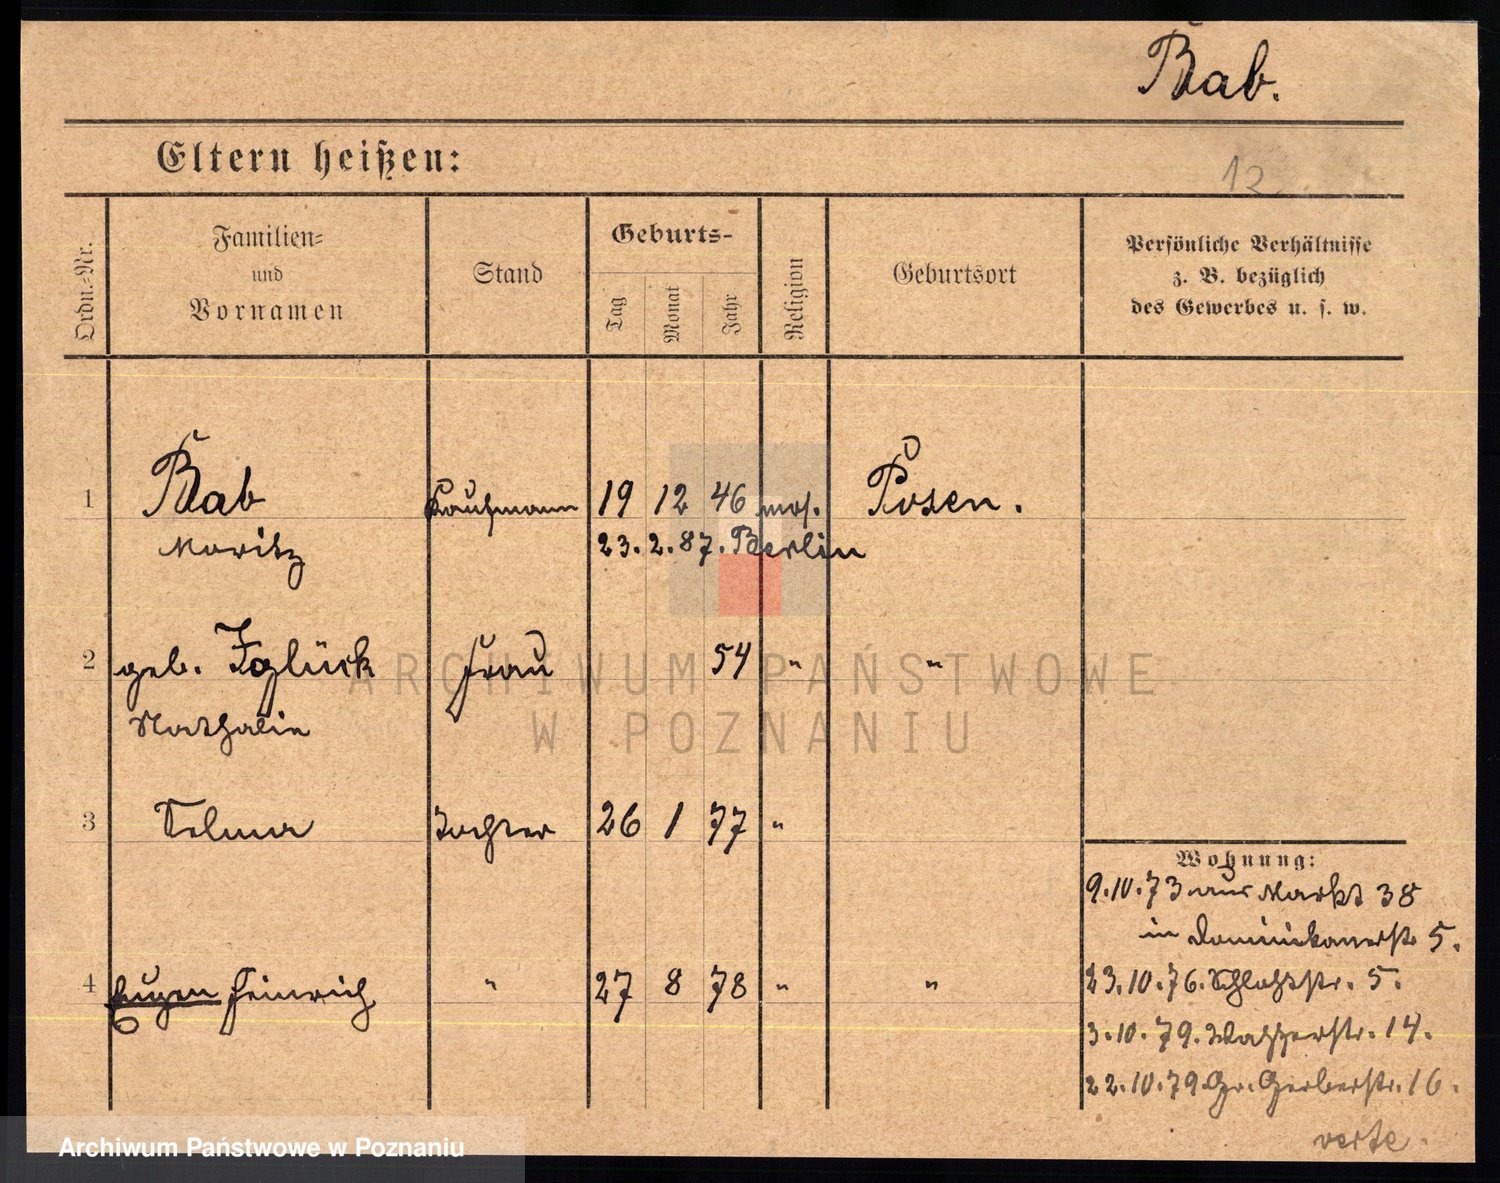 Bab.
Eltern heißen:
12
Ordn.-Nr.
Familien-
und
Vornamen
Stand
Geburts-
Tag
Monat
Jahr
Religion
Geburtsort
Persönliche Verhältnisse
z. B. bezüglich
des Gewerbes u. s. w.
1 Bab Kaufmann 19 12 46 mos. Posen.
Moritz 23. 2. 87. Berlin
2 geb. Zglück Frau 54 " "
Nathalie
3 Selma Tochter 26 1 77 "
4 Eugen Heinrich " 27 8 78 " "
Wohnung:
9.10.73 aus Markt 38
in Dominikanerstr 5.
23.10.76. Schloßstr. 5.
3.10.79. Wasserstr. 14.
22.10.79. Gr. Gerberstr. 16.
verte.
ARCHIWUM PAŃSTWOWE
W POZNANIU
Archiwum Państwowe w Poznaniu